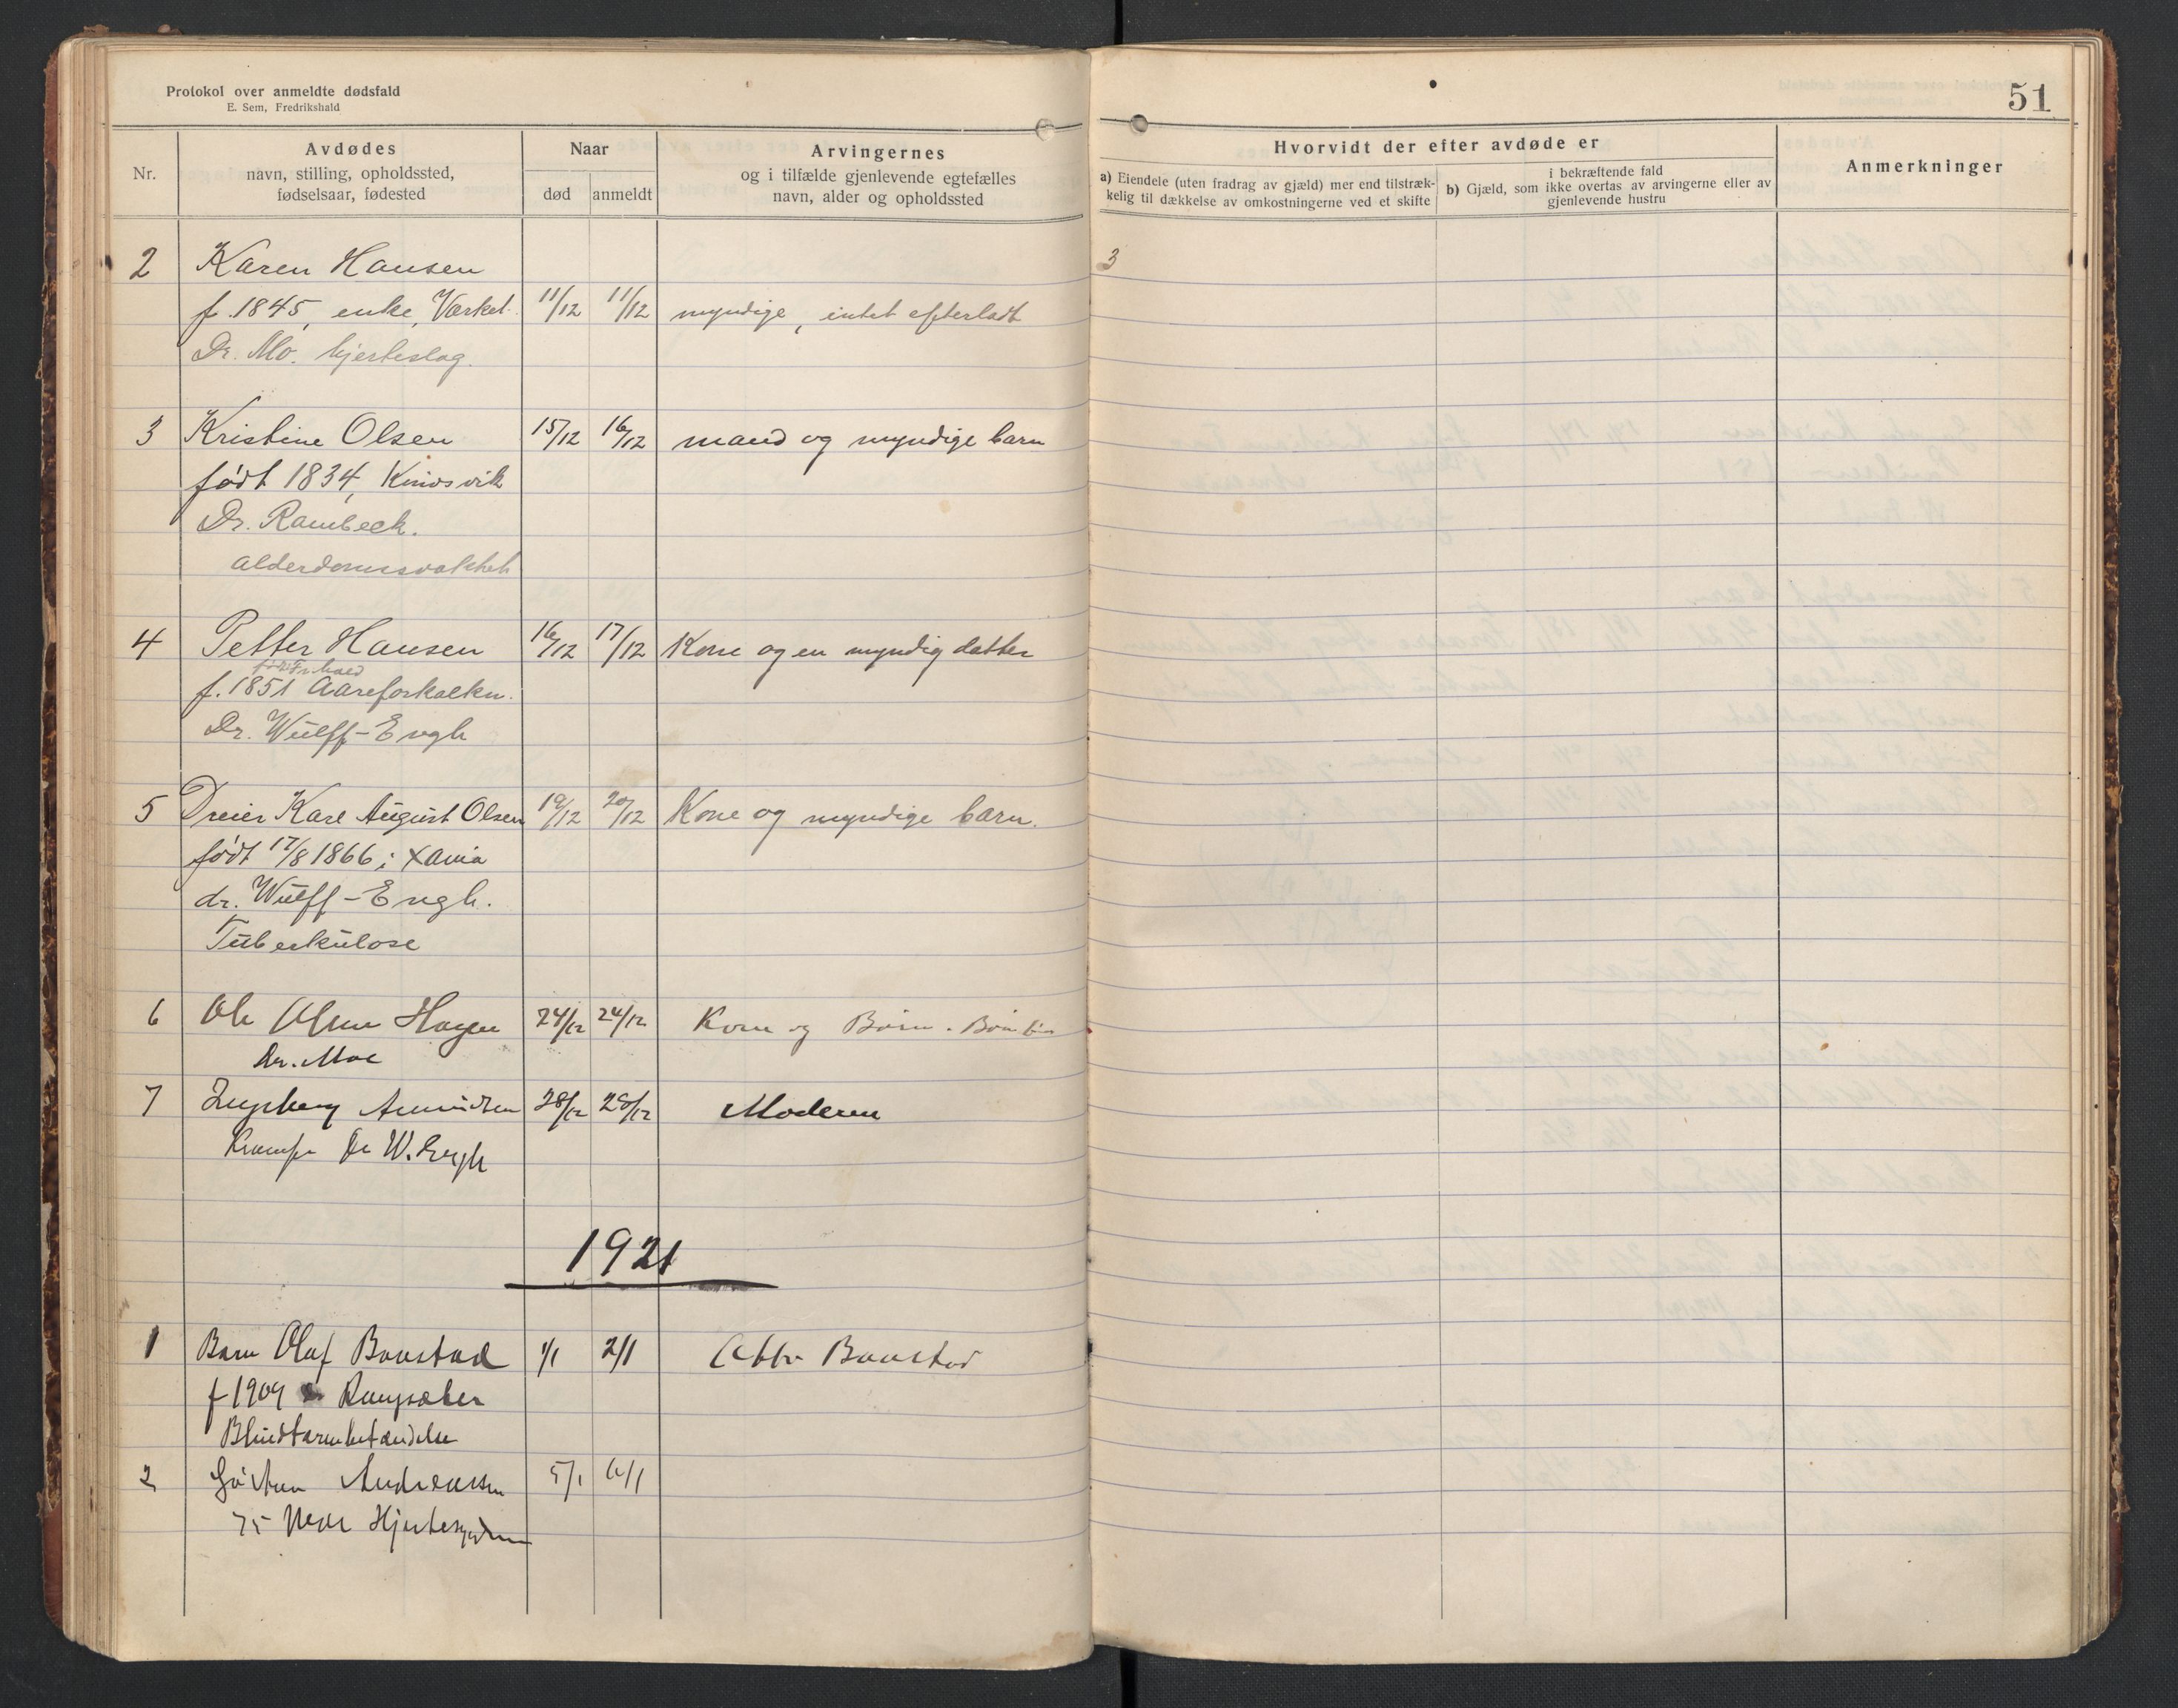 Protokol over anmeldte dødsfald
E. Sem, Fredrikshald
51
Nr.
Avdødes
navn, stilling, opholdssted,
fødselsaar, fødested
Naar
død
anmeldt
Arvingernes
og i tilfælde gjenlevende egtefælles
navn, alder og opholdssted
Hvorvidt der efter avdøde er
a) Eiendele (uten fradrag av gjæld) mer end tilstræk-
kelig til dækkelse av omkostningerne ved et skifte
i bekræftende fald
b) Gjæld, som ikke overtas av arvingerne eller av
gjenlevende hustru
Anmerkninger
2 Karen Hansen 3
f. 1845, enke, Værket. 11/12 11/12 myndige, intet efterladt
Dr. Mo. hjerteslag.
3 Kristine Olsen 15/12 16/12 mand og myndige barn
født 1834,
Dr. Rambeck.
alderdomssvakhet
4 Petter Hansen 16/12 17/12 Kone og en myndig datter
født Fr.hald
f. 1851 Aareforkalkn.
Dr. Wulff-Engh
5 Dreier Karl August Olsen 19/12 20/12 Kone og myndige barn.
født 17/8 1866 i Xania
dr. Wulff-Engh.
Tuberkulose
6 Ole Olsen Hagen 24/12 24/12 Kone og Børn.
Dr. Moe
7 Ingeborg Amundsen 28/12 29/12 Moderen
Krampe Dr W. Engh
1921
1 Barn Olaf Baastad 1/1 2/1 Otto Baastad
f 1909
Blindtarmbetændelse
2 Andreassen 5/1 6/1
75 Hjertesygdom